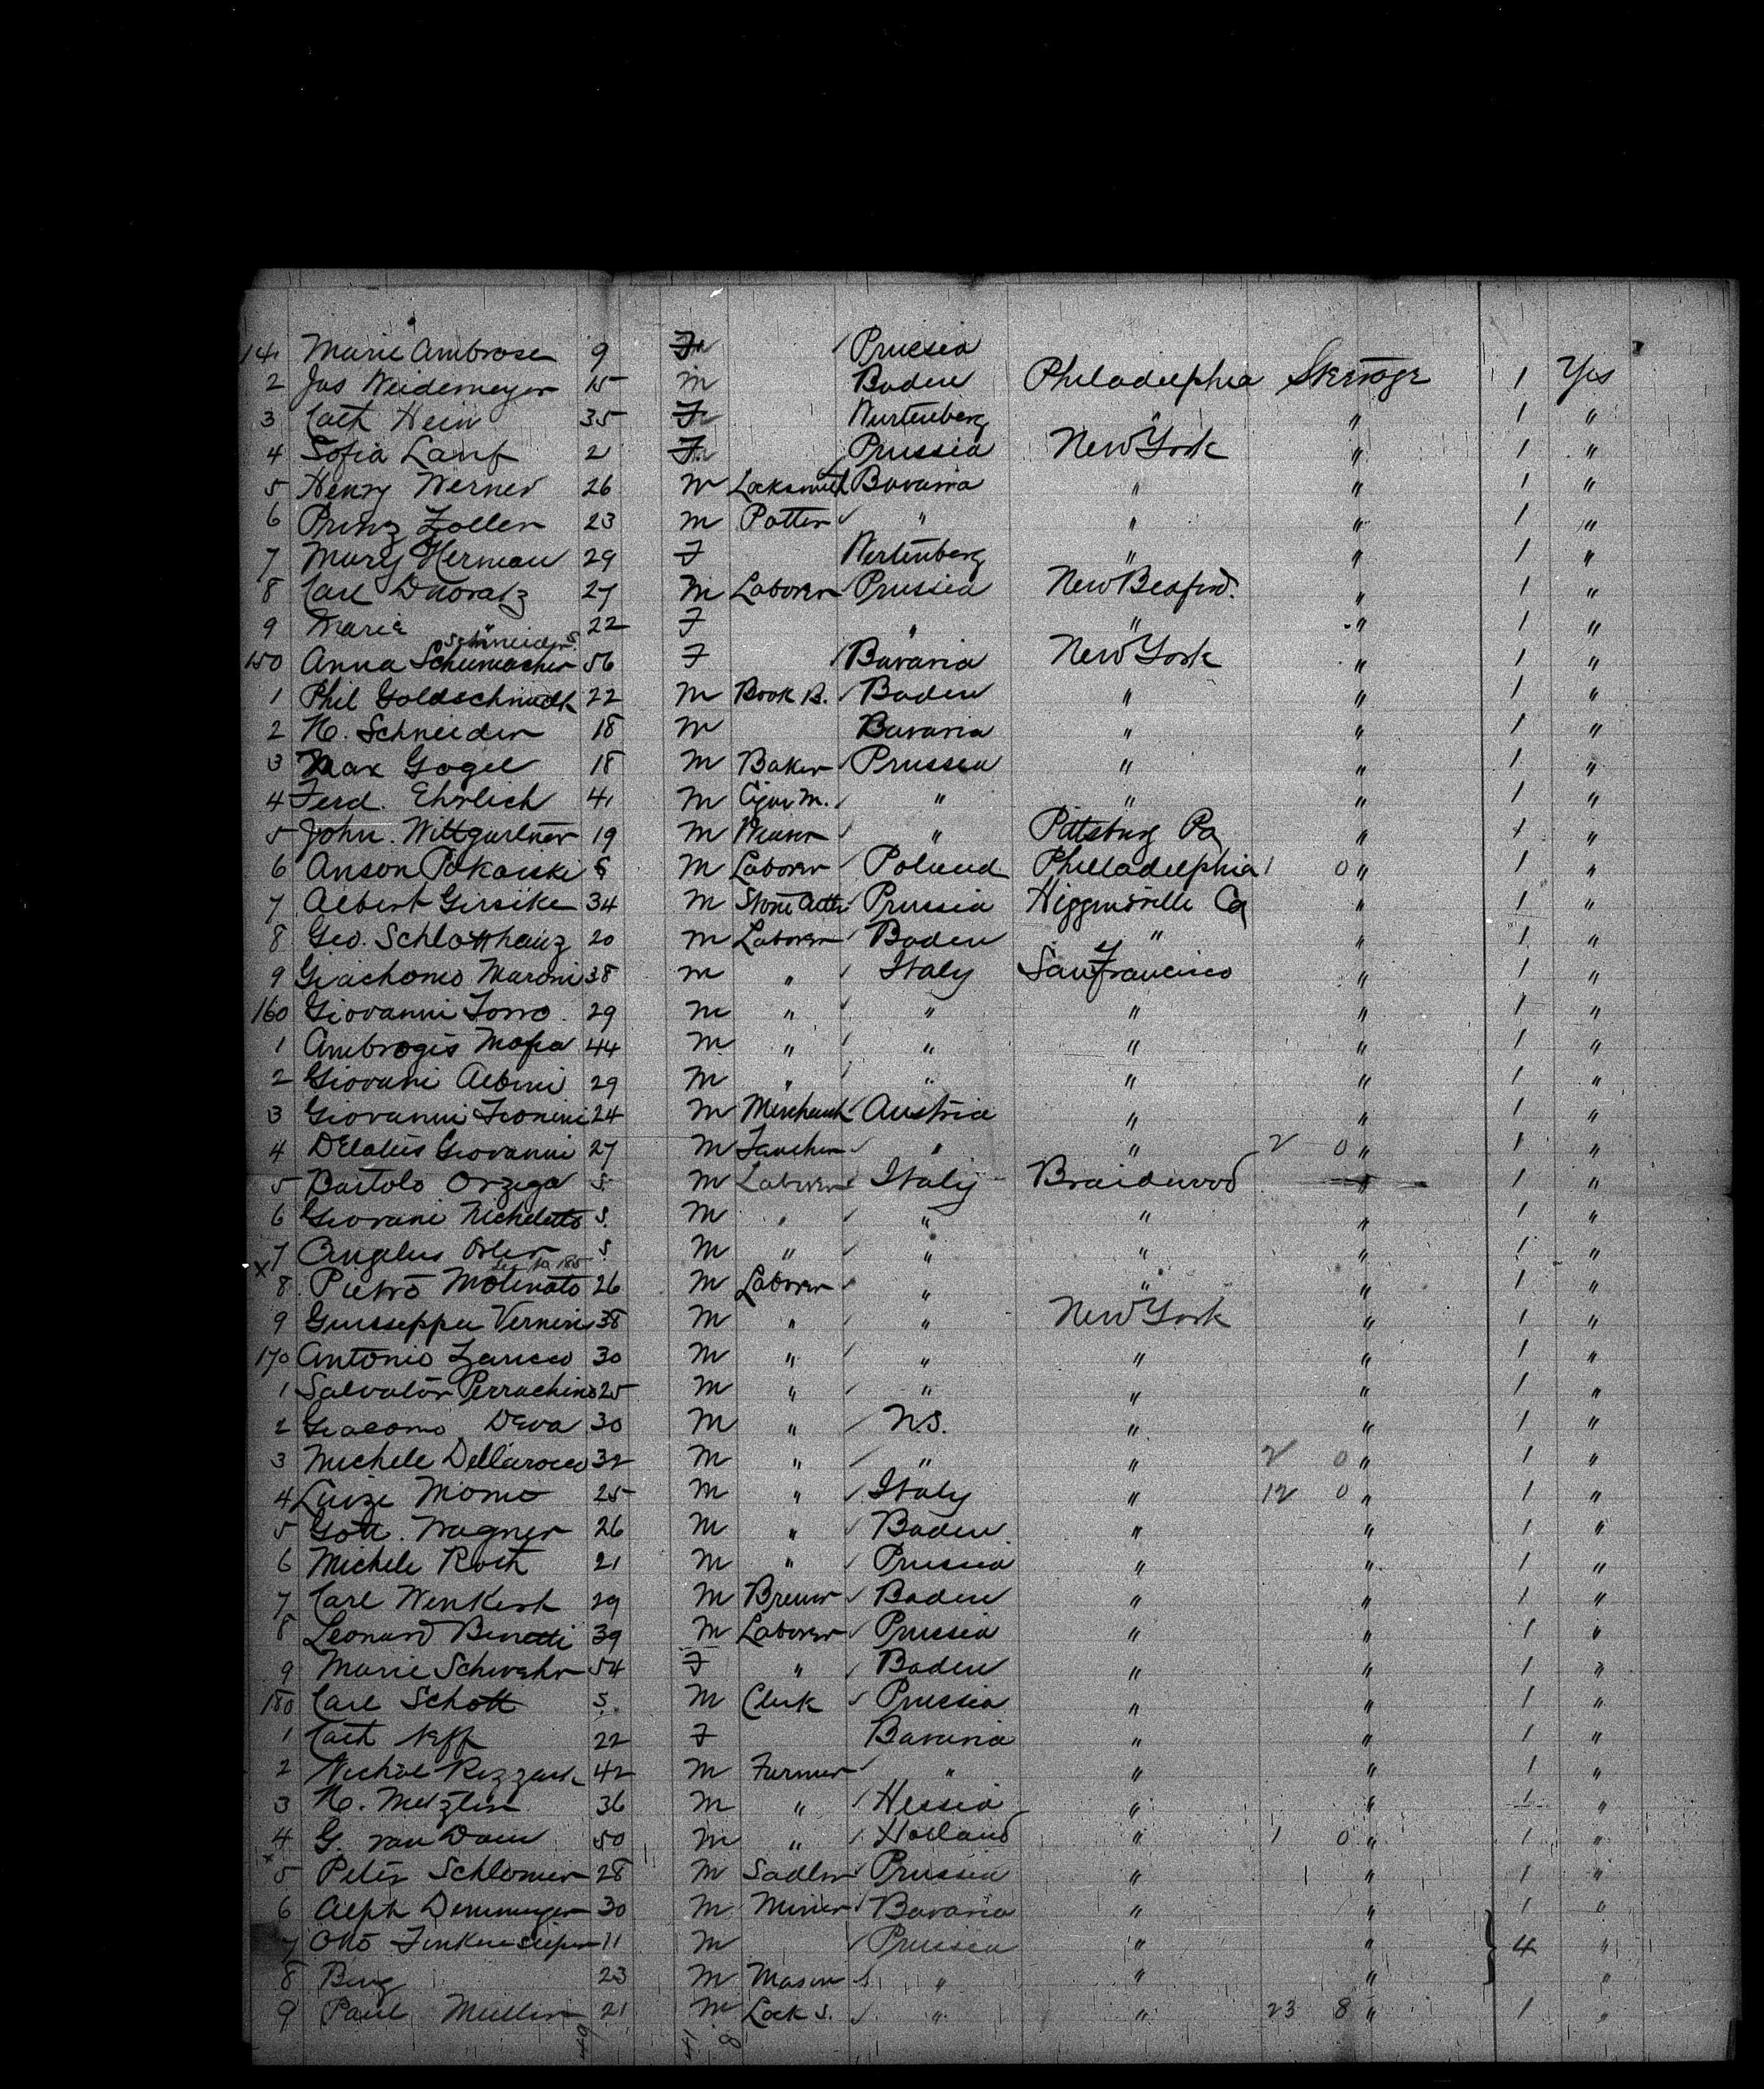 141 Marie Ambrose 9 F Prussia
2 Jas Weidemeyer 15 m Baden Philadelphia Steerage 1 Yes
3 Cath Hein 35 F Wurtenberg " " 1 "
4 Sofia Lanf 2 F Prussia New York " 1 "
5 Henry Werner 26 m Locksmith Bavaria " " 1 "
6 Prinz Zoller 23 m Potter " " " 1 "
7 Mary Herman 29 F Wertenberg " " 1 "
8 Carl Dworatz 27 m Laborer Prussia New Beaford. " 1 "
9 Marie " 22 F " " " 1 "
Schneider S.
150 Anna Schumacher 56 F Bavaria New York " 1 "
1 Phil Goldschmidt 22 m Book B. Baden " " 1 "
2 H. Schneider 18 m Bavaria " " 1 "
3 Max Gogel 18 M Baker Prussia " " 1 "
4 Ferd. Ehrlich 41 M Cigar M. " " " 1 "
5 John. Wittgartner 19 M Weaver " Pittsburg Pa " 1 "
6 Anson Pokarski S M Laborer Poland Philladelphia 1 0 " 1 "
7 Albert Girsike 34 M Stone Cutter Prussia Higginsville Ca " 1 "
8 Geo. Schlotthauz 20 m Laborer Baden " " 1 "
9 Giachomo Maroni 38 m " Italy San Francisco " 1 "
160 Giovanni Torro 29 m " " " " 1 "
1 Ambrogis Mossa 44 m " " " " 1 "
2 Giovani Albini 29 m " " " " 1 "
3 Giovanni Zionini 24 m Merchant Austria " " 1 "
4 DElatis Giovanni 27 M " " 2 0 " 1 "
5 Bartolo Orzega S M Laborer Italy Braidwood " 1 "
6 Giovani Micheletto S. M " " " " 1 "
x7 Angelus Orler S M " " " " 1 "
8 Pietro Molinato 26 M Laborer " " " 1 "
9 Guisseppe Vernini 38 M " " New York " 1 "
170 Antonio Zaricco 30 M " " " " 1 "
1 Salvator Perrachino 25 M " " " " 1 "
2 Giacomo Deva 30 M " N.S. " " 1 "
3 Michele Dellarocco 32 M " " " 2 0 " 1 "
4 Luize Momo 25 M " Italy " 12 0 " 1 "
5 Gott. Wagner 26 M " Baden " " 1 "
6 Michele Roth 21 M " Prussia " " 1 "
7 Carl Wenkert 29 M Brewer Baden " " 1 "
8 Leonard Binetti 39 M Laborer Prussia " " 1 "
9 Marie Schwehr 54 F " Baden " " 1 "
180 Carl Schott S. M Clerk Prussia " " 1 "
1 Cath Neff 22 F Bavaria " " 1 "
2 Nichol 42 M Farmer " " " 1 "
3 H. Metzler 36 M " Hessia " " 1 "
4 G. van Dam 50 M " Holland " 1 0 " 1 "
x5 Peter Schlomer 28 M Sadler Prussia " " 1 "
6 Alph Demmeyer 30 M Miner Bavaria " " 1 "
7 Otto Finkensieper 11 M Prussia " " 4 "
8 Berg 23 M Mason S. " " " "
9 Paul Muller 21 M Lock S. " " 23 8 " 1 "
49 41 8